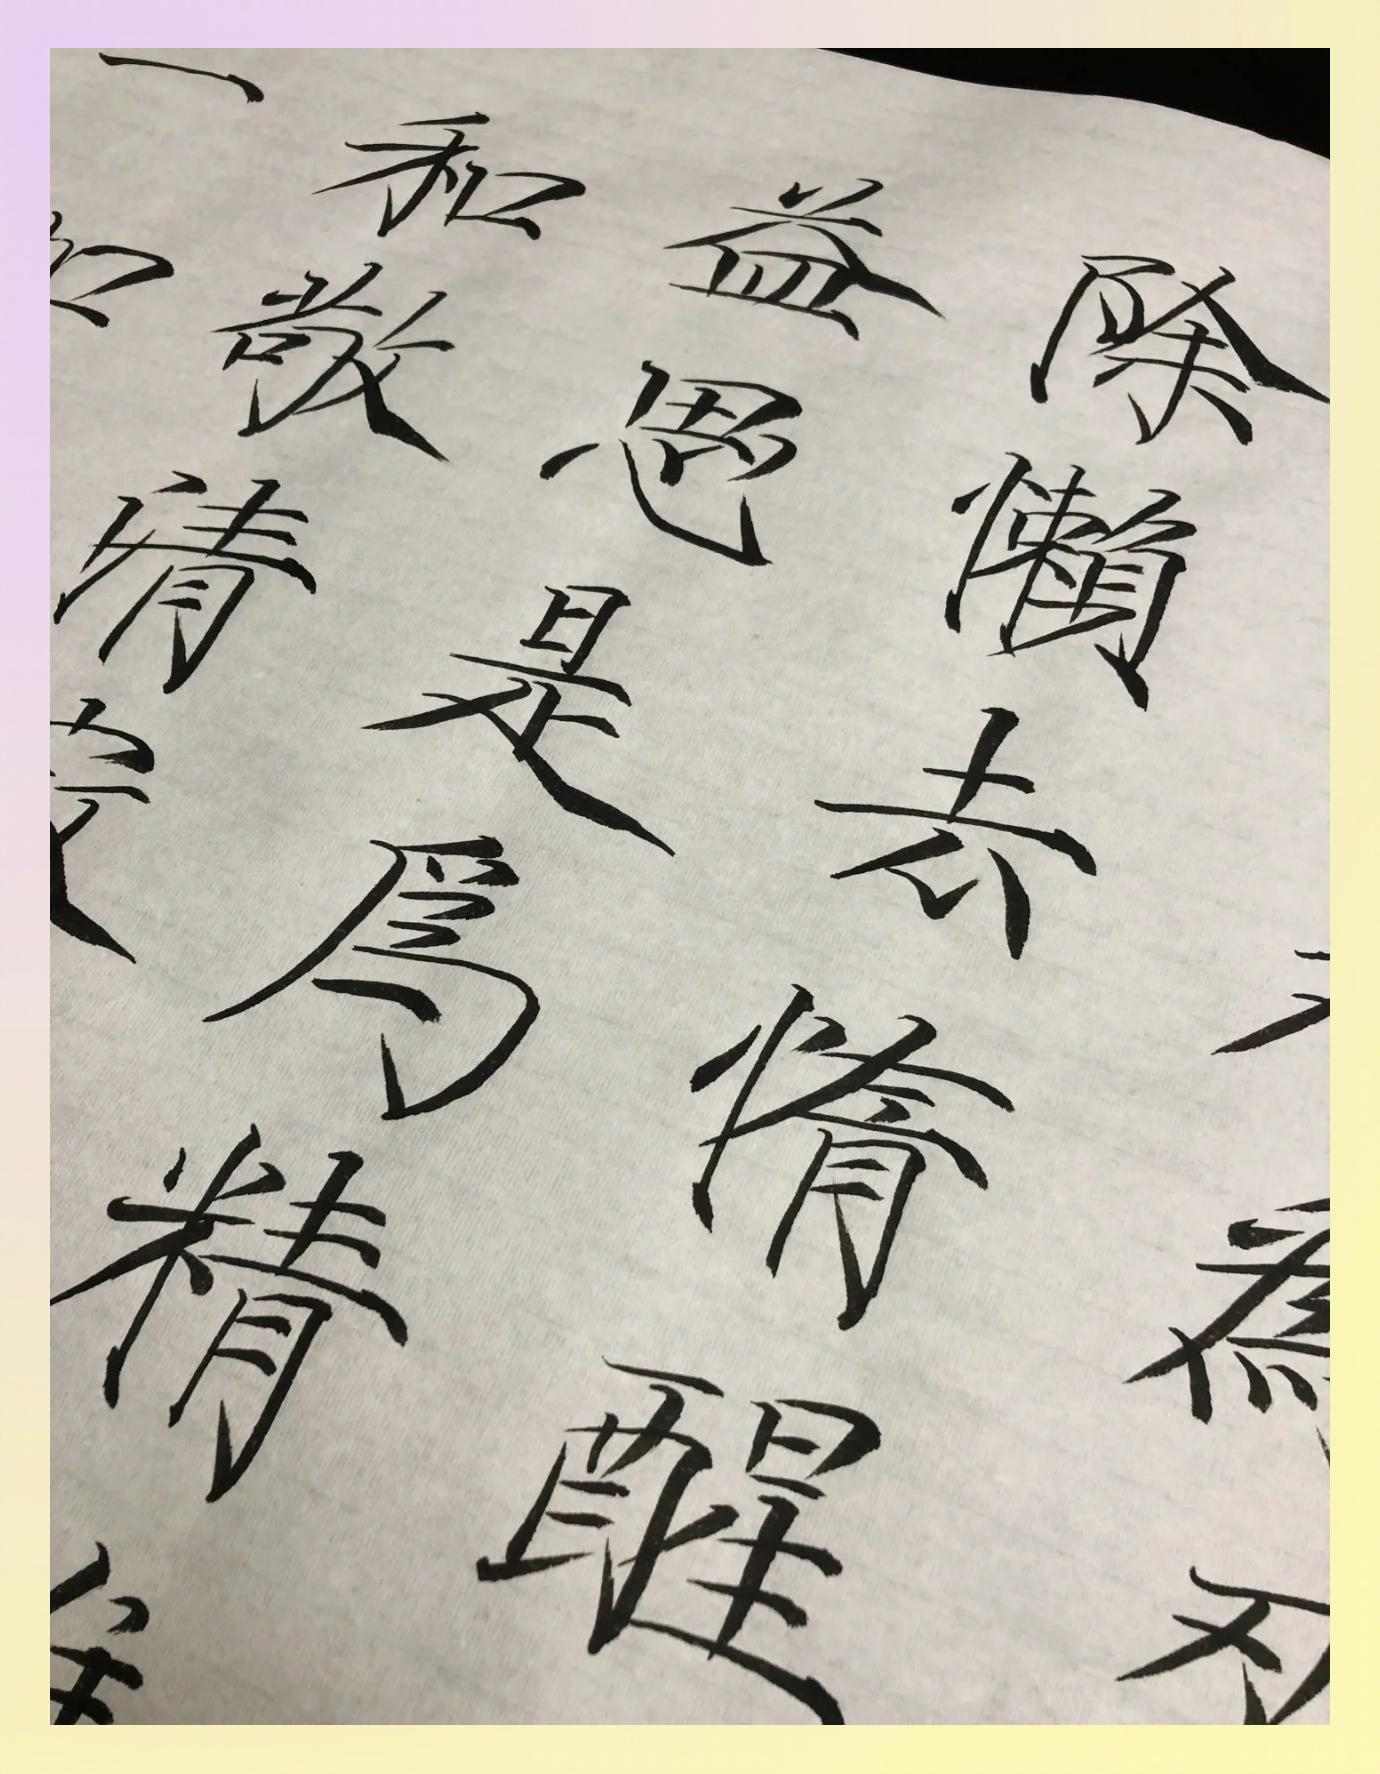 除懶去惰醒
益思是爲精
和敬清寂